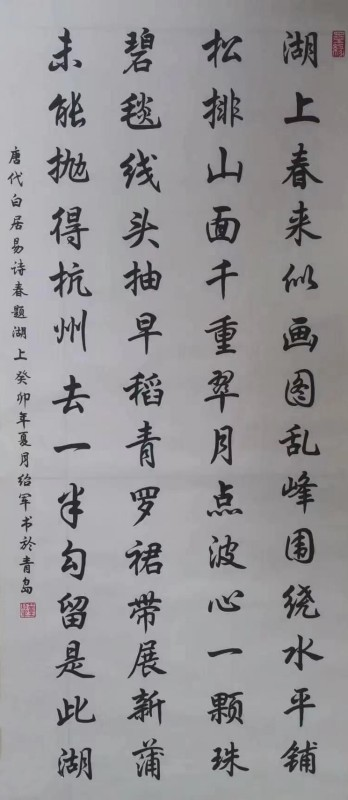 湖上春来似画图乱峰围绕水平铺
松排山面千重翠月点波心一颗珠
碧毯线头抽早稻青罗裙带展新蒲
未能抛得杭州去一半勾留是此湖
唐代白居易诗春题湖上癸卯年夏月绍军书於青岛